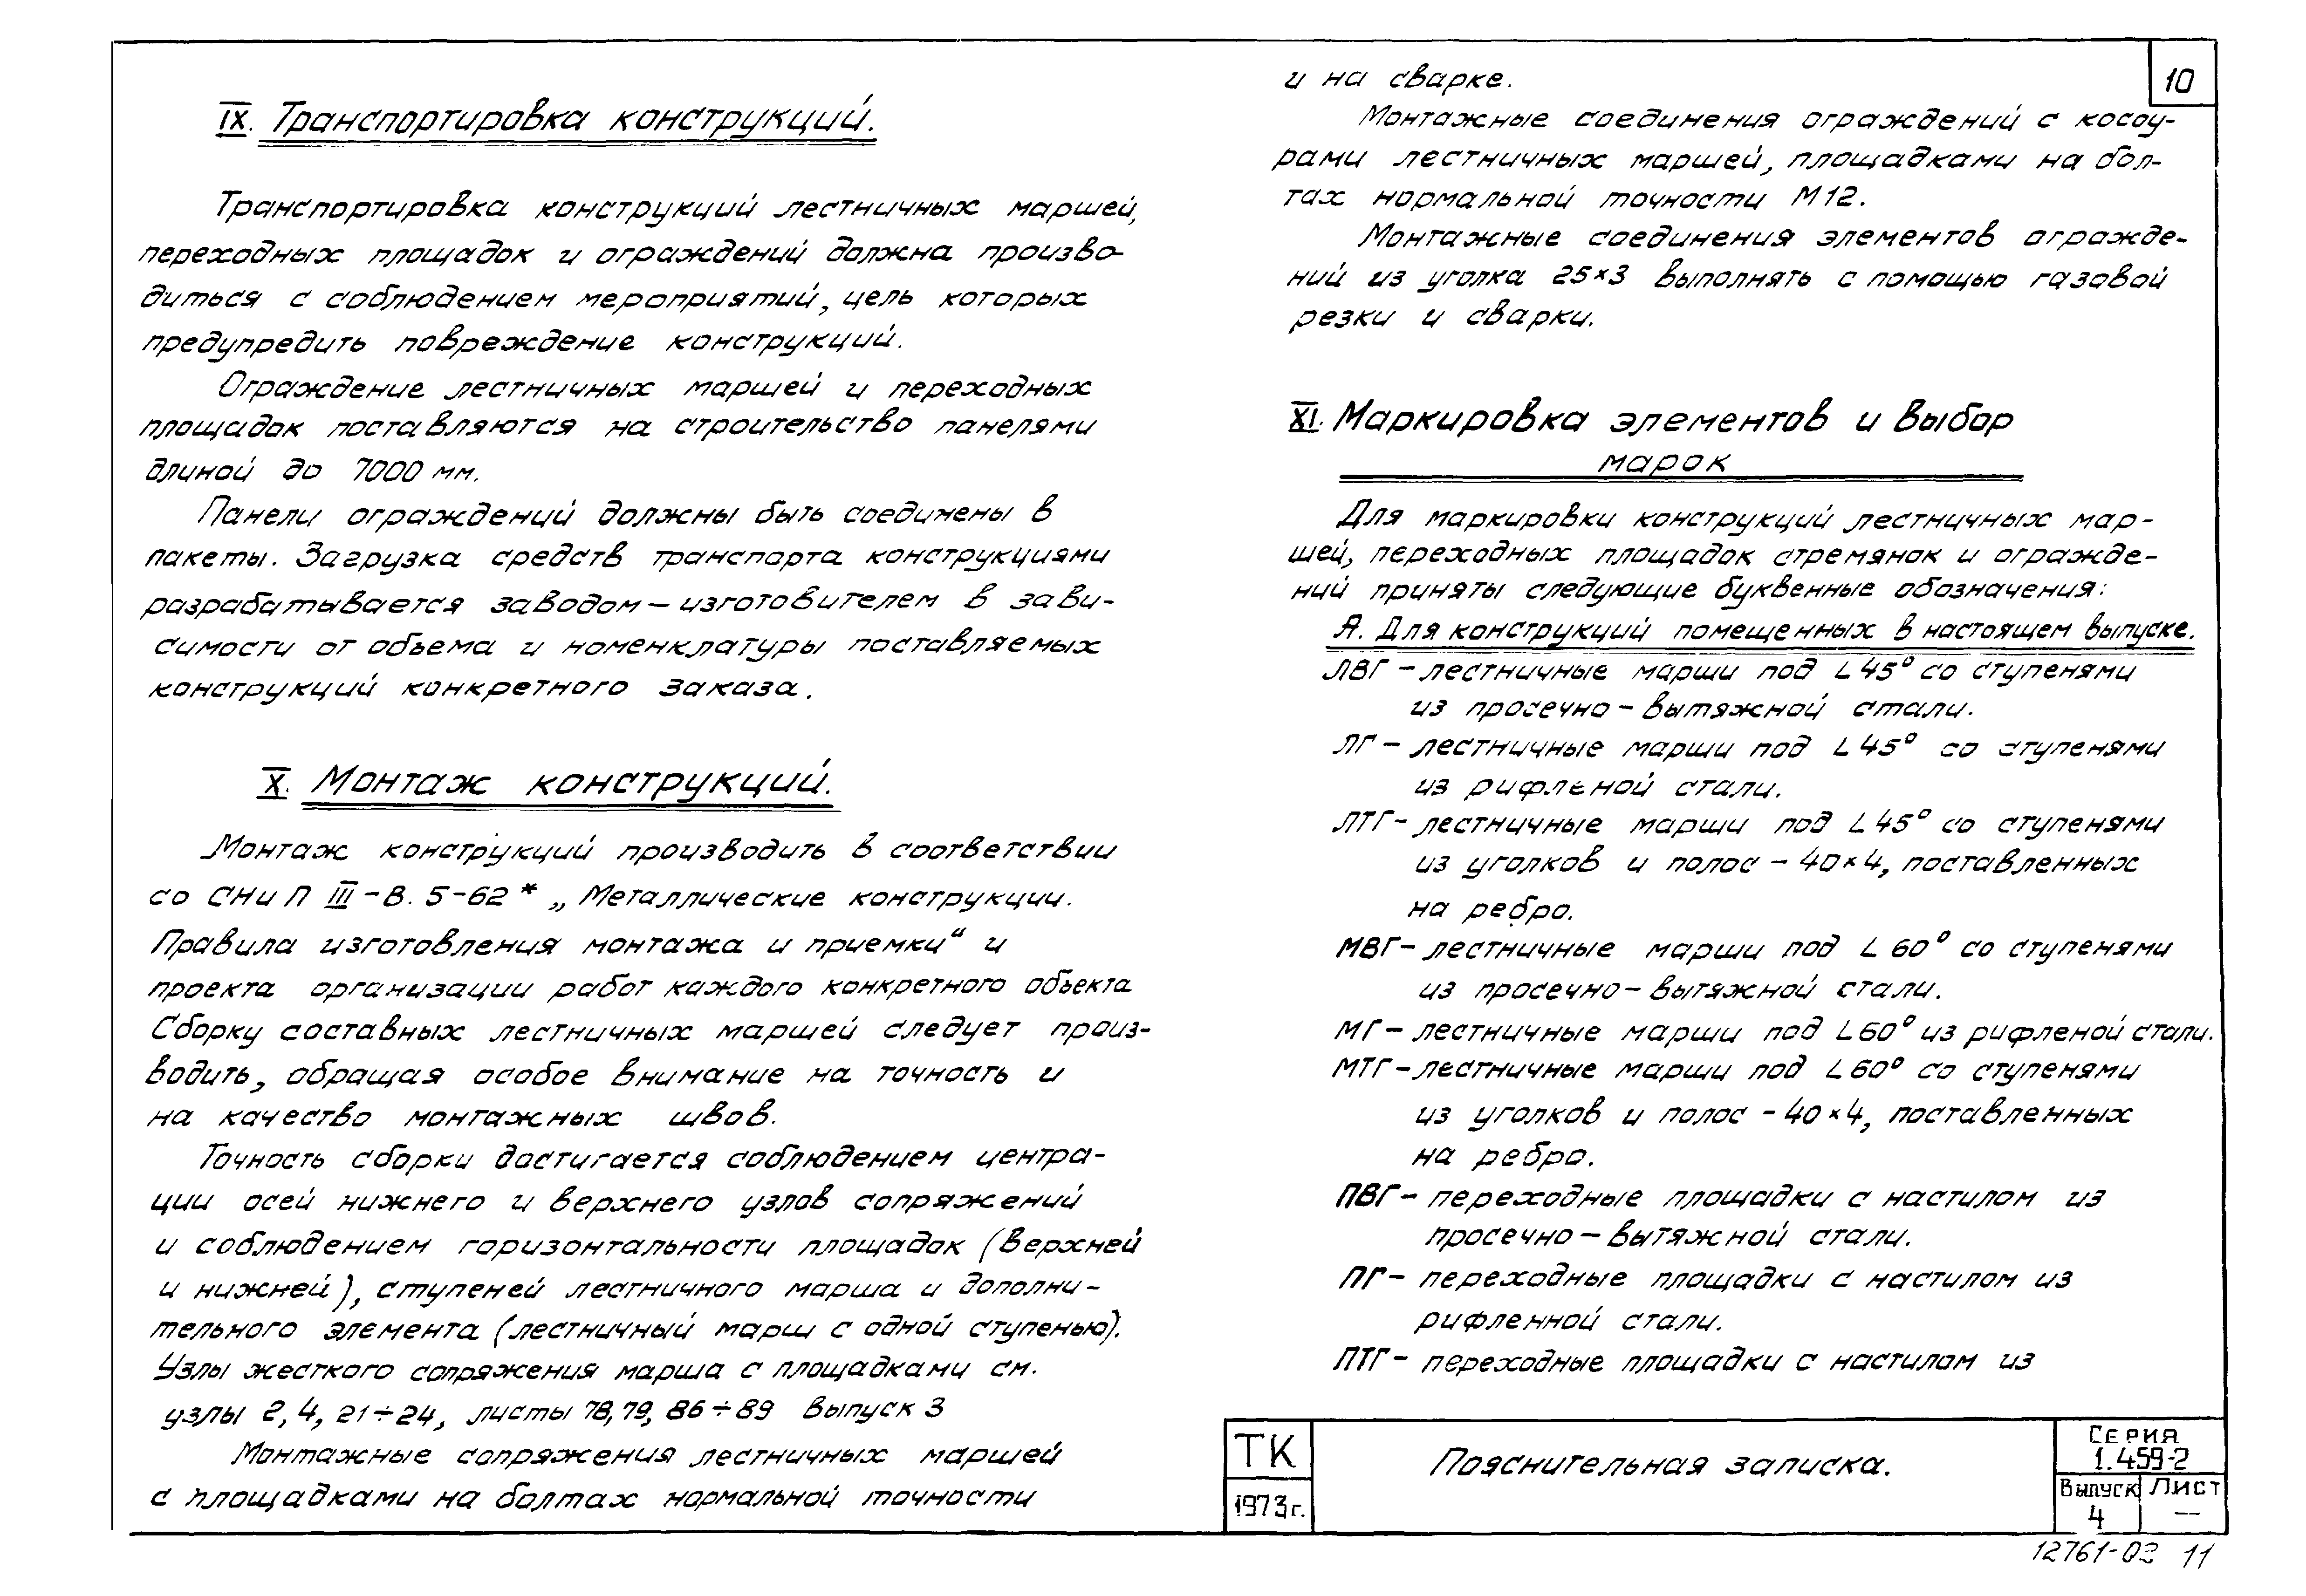 IX. Транспортировка конструкций.
Транспортировка конструкций лестничных маршей,
переходных площадок и ограждений должна произво-
диться с соблюдением мероприятий, цель которых
предупредить повреждение конструкций.
Ограждение лестничных маршей и переходных
площадок поставляются на строительство панелями
длиной до 7000 мм.
Панели ограждений должны быть соединены в
пакеты. Загрузка средств транспорта конструкциями
разрабатывается заводом-изготовителем в зави-
симости от объема и номенклатуры поставляемых
конструкций конкретного заказа.
X. Монтаж конструкций.
Монтаж конструкций производить в соответствии
со СНиП III-В. 5-62* „Металлические конструкции.
Правила изготовления монтажа и приемки“ и
проекта организации работ каждого конкретного объекта
Сборку составных лестничных маршей следует произ-
водить, обращая особое внимание на точность и
на качество монтажных швов.
Точность сборки достигается соблюдением центра-
ции осей нижнего и верхнего узлов сопряжений
и соблюдением горизонтальности площадок (верхней
и нижней), ступеней лестничного марша и дополни-
тельного элемента (лестничный марш с одной ступенью).
Узлы жесткого сопряжения марша с площадками см.
узлы 2, 4, 21÷24, листы 78, 79, 86÷89 Выпуск 3
Монтажные сопряжения лестничных маршей
с площадками на болтах нормальной точности
10
и на сварке.
Монтажные соединения ограждений с косоу-
рами лестничных маршей, площадками на бол-
тах нормальной точности М12.
Монтажные соединения элементов огражде-
ний из уголка 25×3 выполнять с помощью газовой
резки и сварки.
XI. Маркировка элементов и выбор
марок
Для маркировки конструкций лестничных мар-
шей, переходных площадок стремянок и огражде-
ний приняты следующие буквенные обозначения:
А. Для конструкций помещенных в настоящем выпуске.
ЛВГ – лестничные марши под ∠45° со ступенями
из просечно-вытяжной стали.
ЛГ – лестничные марши под ∠45° со ступенями
из рифленой стали.
ЛТГ – лестничные марши под ∠45° со ступенями
из уголков и полос – 40×4, поставленных
на ребро.
МВГ – лестничные марши под ∠60° со ступенями
из просечно-вытяжной стали.
МГ – лестничные марши под ∠60° из рифленой стали.
МТГ – лестничные марши под ∠60° со ступенями
из уголков и полос – 40×4, поставленных
на ребро.
ПВГ – переходные площадки с настилом из
просечно-вытяжной стали.
ПГ – переходные площадки с настилом из
рифленной стали.
ПТГ – переходные площадки с настилом из
ТК
1973г.
Пояснительная записка.
Серия
1.459-2
Выпуск Лист
4 —
12761-02 11